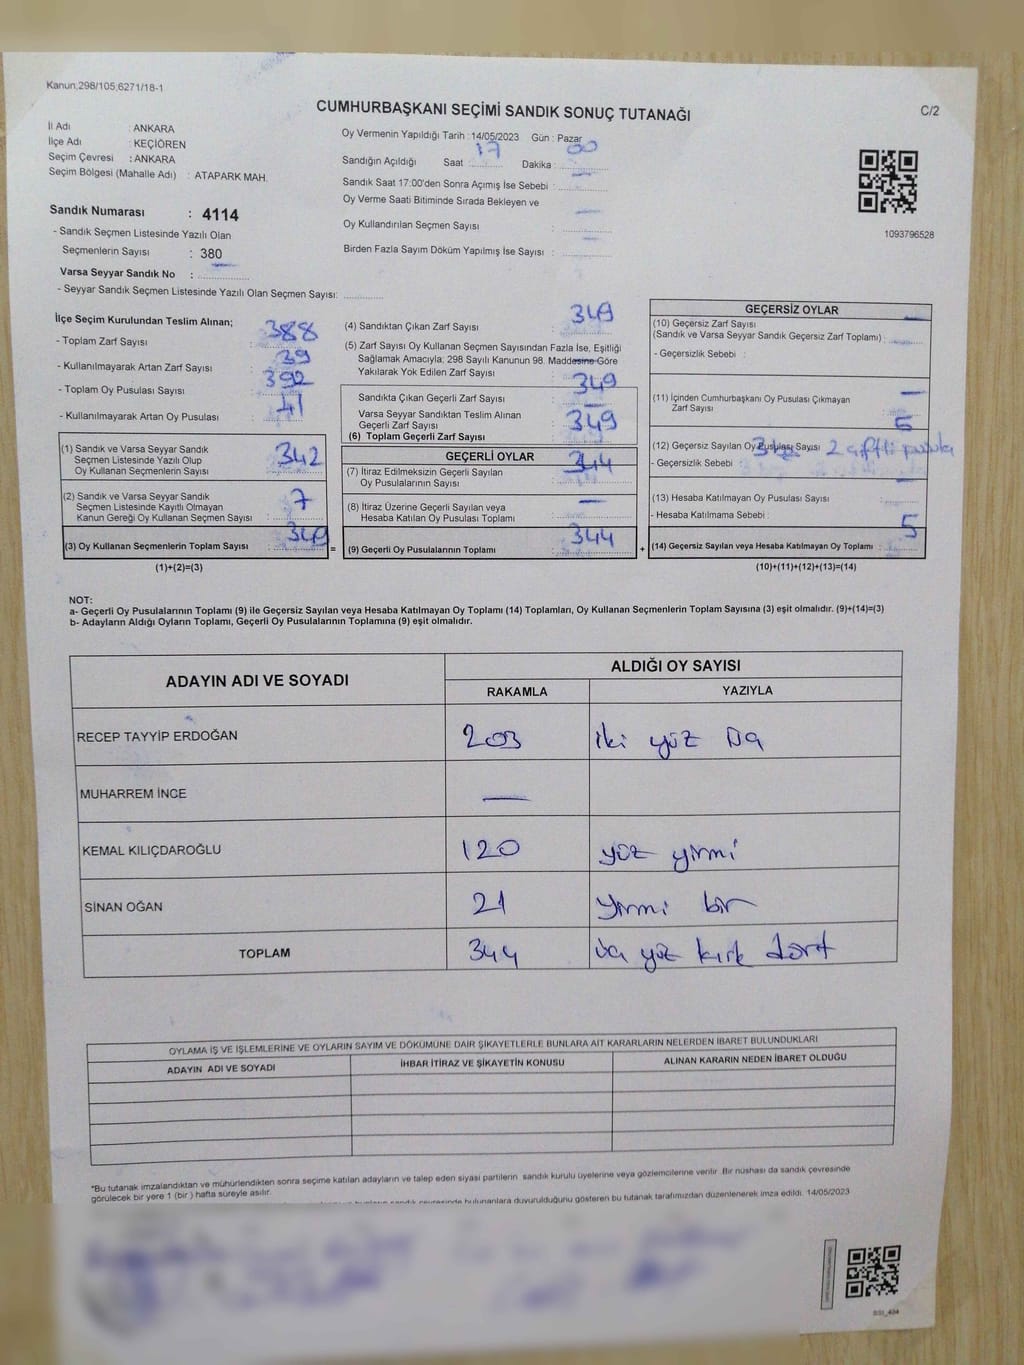 Kanun,298/105,6271/18-1
C/2
CUMHURBAŞKANI SEÇİMİ SANDIK SONUÇ TUTANAĞI
İl Adı : ANKARA
İlçe Adı : KEÇİÖREN
Seçim Çevresi : ANKARA
Seçim Bölgesi (Mahalle Adı) : ATAPARK MAH.
Sandık Numarası : 4114
- Sandık Seçmen Listesinde Yazılı Olan
Seçmenlerin Sayısı : 380
Varsa Seyyar Sandık No : —
- Seyyar Sandık Seçmen Listesinde Yazılı Olan Seçmen Sayısı:
Oy Vermenin Yapıldığı Tarih : 14/05/2023 Gün : Pazar
Sandığın Açıldığı Saat : 17 Dakika : 00
Sandık Saat 17:00'den Sonra Açımış İse Sebebi : —
Oy Verme Saati Bitiminde Sırada Bekleyen ve
Oy Kullandırılan Seçmen Sayısı : —
Birden Fazla Sayım Döküm Yapılmış İse Sayısı : —
1093796528
İlçe Seçim Kurulundan Teslim Alınan;
- Toplam Zarf Sayısı : 388
- Kullanılmayarak Artan Zarf Sayısı : 39
- Toplam Oy Pusulası Sayısı : 392
- Kullanılmayarak Artan Oy Pusulası : 41
(1) Sandık ve Varsa Seyyar Sandık
Seçmen Listesinde Yazılı Olup
Oy Kullanan Seçmenlerin Sayısı : 342
(2) Sandık ve Varsa Seyyar Sandık
Seçmen Listesinde Kayıtlı Olmayan
Kanun Gereği Oy Kullanan Seçmen Sayısı : 7
(3) Oy Kullanan Seçmenlerin Toplam Sayısı : 349
(1)+(2)=(3)
(4) Sandıktan Çıkan Zarf Sayısı : 349
(5) Zarf Sayısı Oy Kullanan Seçmen Sayısından Fazla İse, Eşitliği
Sağlamak Amacıyla; 298 Sayılı Kanunun 98. Maddesine Göre
Yakılarak Yok Edilen Zarf Sayısı : —
Sandıkta Çıkan Geçerli Zarf Sayısı : 349
Varsa Seyyar Sandıktan Teslim Alınan
Geçerli Zarf Sayısı : —
(6) Toplam Geçerli Zarf Sayısı : 349
GEÇERLİ OYLAR
(7) İtiraz Edilmeksizin Geçerli Sayılan
Oy Pusulalarının Sayısı : 344
(8) İtiraz Üzerine Geçerli Sayılan veya
Hesaba Katılan Oy Pusulası Toplamı : —
= (9) Geçerli Oy Pusulalarının Toplamı : 344
GEÇERSİZ OYLAR
(10) Geçersiz Zarf Sayısı —
(Sandık ve Varsa Seyyar Sandık Geçersiz Zarf Toplamı) :
- Geçersizlik Sebebi :
(11) İçinden Cumhurbaşkanı Oy Pusulası Çıkmayan
Zarf Sayısı : —
(12) Geçersiz Sayılan Oy Pusulası Sayısı : 5
- Geçersizlik Sebebi : 2 çiftli pusula
(13) Hesaba Katılmayan Oy Pusulası Sayısı : —
- Hesaba Katılmama Sebebi :
+ (14) Geçersiz Sayılan veya Hesaba Katılmayan Oy Toplamı : 5
(10)+(11)+(12)+(13)=(14)
NOT:
a- Geçerli Oy Pusulalarının Toplamı (9) ile Geçersiz Sayılan veya Hesaba Katılmayan Oy Toplamı (14) Toplamları, Oy Kullanan Seçmenlerin Toplam Sayısına (3) eşit olmalıdır. (9)+(14)=(3)
b- Adayların Aldığı Oyların Toplamı, Geçerli Oy Pusulalarının Toplamına (9) eşit olmalıdır.
ADAYIN ADI VE SOYADI
ALDIĞI OY SAYISI
RAKAMLA YAZIYLA
RECEP TAYYİP ERDOĞAN 203 iki yüz üç
MUHARREM İNCE —
KEMAL KILIÇDAROĞLU 120 yüz yirmi
SİNAN OĞAN 21 yirmi bir
TOPLAM 344 üç yüz kırk dört
OYLAMA İŞ VE İŞLEMLERİNE VE OYLARIN SAYIM VE DÖKÜMÜNE DAİR ŞİKAYETLERLE BUNLARA AİT KARARLARIN NELERDEN İBARET BULUNDUKLARI
ADAYIN ADI VE SOYADI İHBAR İTİRAZ VE ŞİKAYETİN KONUSU ALINAN KARARIN NEDEN İBARET OLDUĞU
*Bu tutanak imzalandıktan ve mühürlendikten sonra seçime katılan adayların ve talep eden siyasi partilerin sandık kurulu üyelerine veya gözlemcilerine verilir. Bir nüshası da sandık çevresinde
görülecek bir yere 1 (bir) hafta süreyle asılır.
bulunanlara duyurulduğunu gösteren bu tutanak tarafımızdan düzenlenerek imza edildi. 14/05/2023